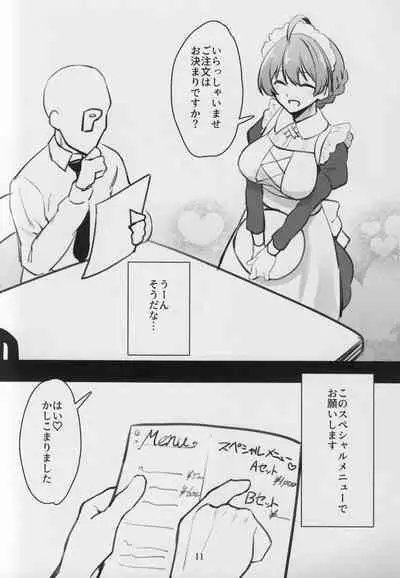 いらっしゃいませ
ご注文は
お決まりですか?
P
うーん
そうだな…
このスペシャルメニューで
お願いします
Menu
スペシャルメニュー♡
Aセット
Bセット
¥
はい♡
かしこまりました
11